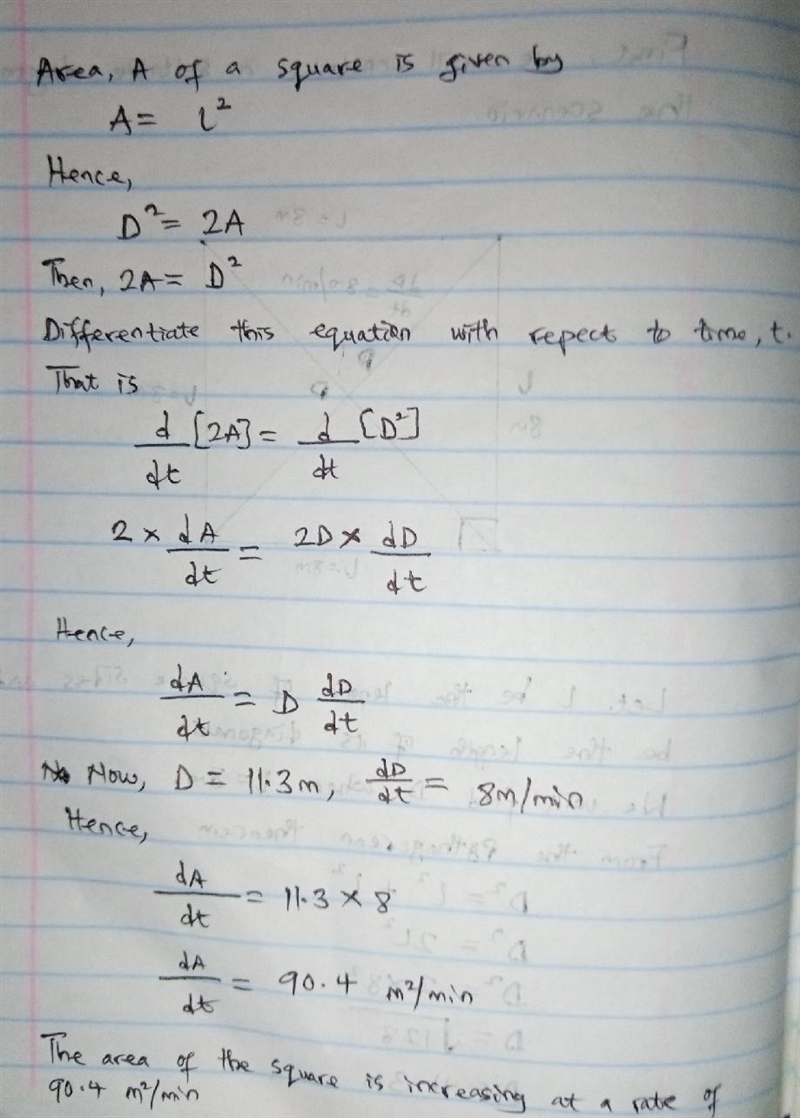 Area, A of a square is given by
A = l²
Hence,
D² = 2A
Then, 2A = D²
Differentiate this equation with repect to time, t.
That is
d/dt [2A] = d/dt [D²]
2 × dA/dt = 2D × dD/dt
Hence,
dA/dt = D dD/dt
Now, D = 11.3m, dD/dt = 8m/min
Hence,
dA/dt = 11.3 × 8
dA/dt = 90.4 m²/min
The area of the square is increasing at a rate of
90.4 m²/min